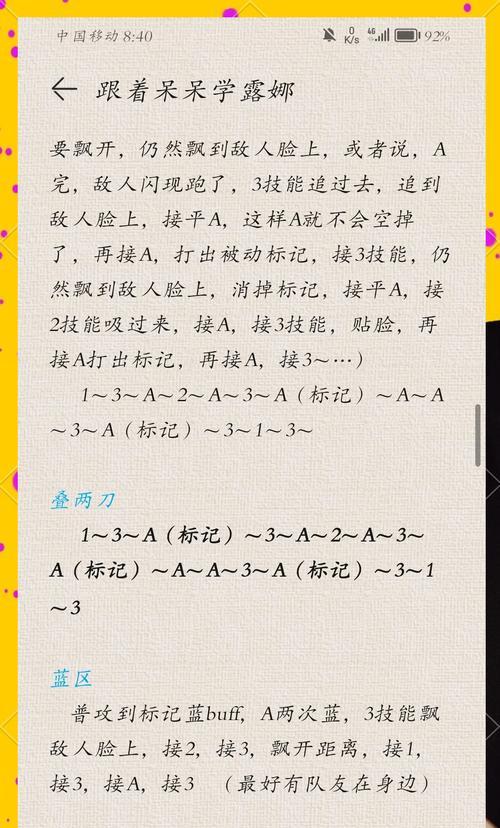 中国移动 8:40
0 K/s 4G 92%
← 跟着呆呆学露娜
要飘开，仍然飘到敌人脸上，或者说，A
完，敌人闪现跑了，3技能追过去，追到
敌人脸上，接平A，这样A就不会空掉
了，再接A，打出被动标记，接3技能，仍
然飘到敌人脸上，消掉标记，接平A，接
2技能吸过来，接A，接3技能，贴脸，再
接A打出标记，再接A，接3～…）
1～3～A～2～A～3～A（标记）～A～A
～3～A（标记）～3～1～3～
叠两刀
1～3～A（标记）～3～A～2～A～3～
A（标记）～A～A～3～A（标记）～3～1
～3
蓝区
普攻到标记蓝buff，A两次蓝，3技能飘
敌人脸上，接2，接3，飘开距离，接1，
接3，接A，接3　（最好有队友在身边）